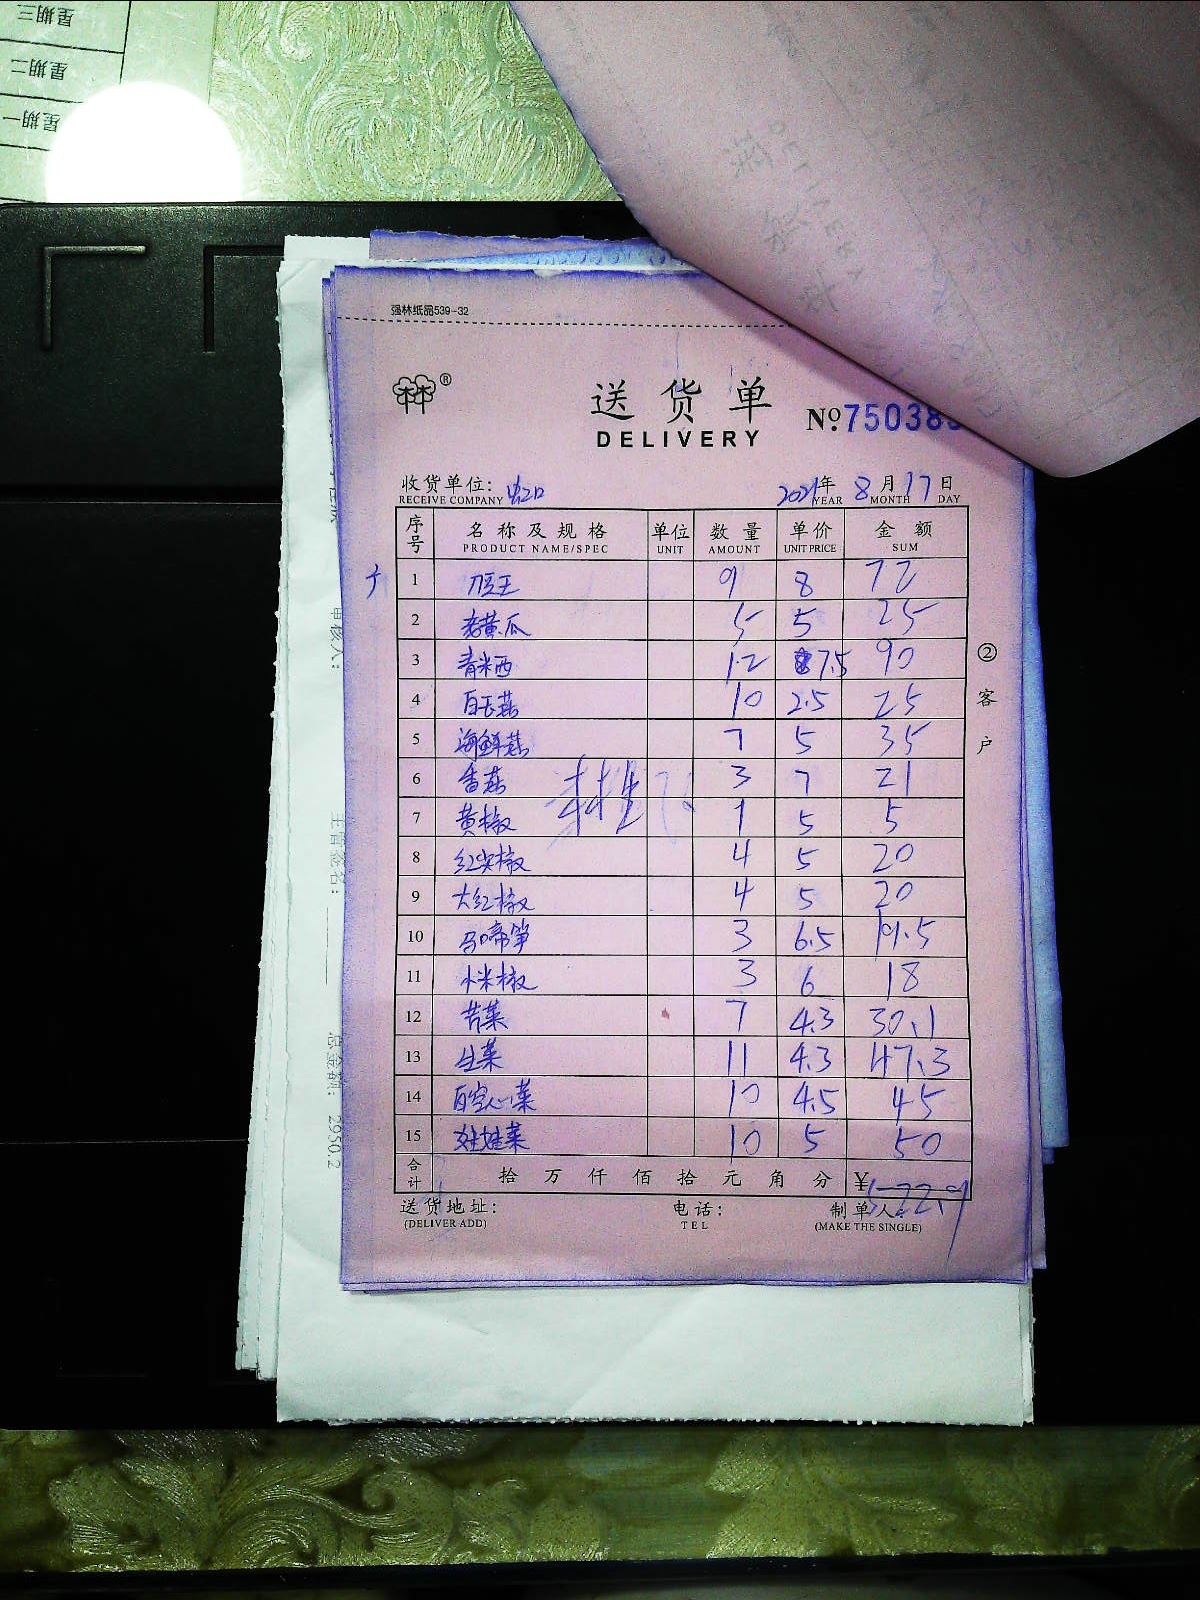 星期三
星期二
星期一
强林纸品539-32
林林 ®
送货单
DELIVERY
No. 750383
收货单位：
RECEIVE COMPANY
2021年 8月 17日
YEAR MONTH DAY
序号 名称及规格 单位 数量 单价 金额
PRODUCT NAME/SPEC UNIT AMOUNT UNIT PRICE SUM
1 9 8 72
2 老黄瓜 5 5 25
3 青米西 12 7.5 90
4 白玉菇 10 2.5 25
5 海鲜菇 7 5 35
6 香菇 3 7 21
7 黄椒 1 5 5
8 红尖椒 4 5 20
9 大红椒 4 5 20
10 马啼笋 3 6.5 19.5
11 小米椒 3 6 18
12 苦菜 7 4.3 30.1
13 生菜 11 4.3 47.3
14 白空心菜 10 4.5 45
15 娃娃菜 10 5 50
合计 拾 万 仟 佰 拾 元 角 分 ¥522.9
送货地址： 电话： 制单人：
(DELIVER ADD) TEL (MAKE THE SINGLE)
②客户
审核人：
主管签名：
总金额： 2950.2